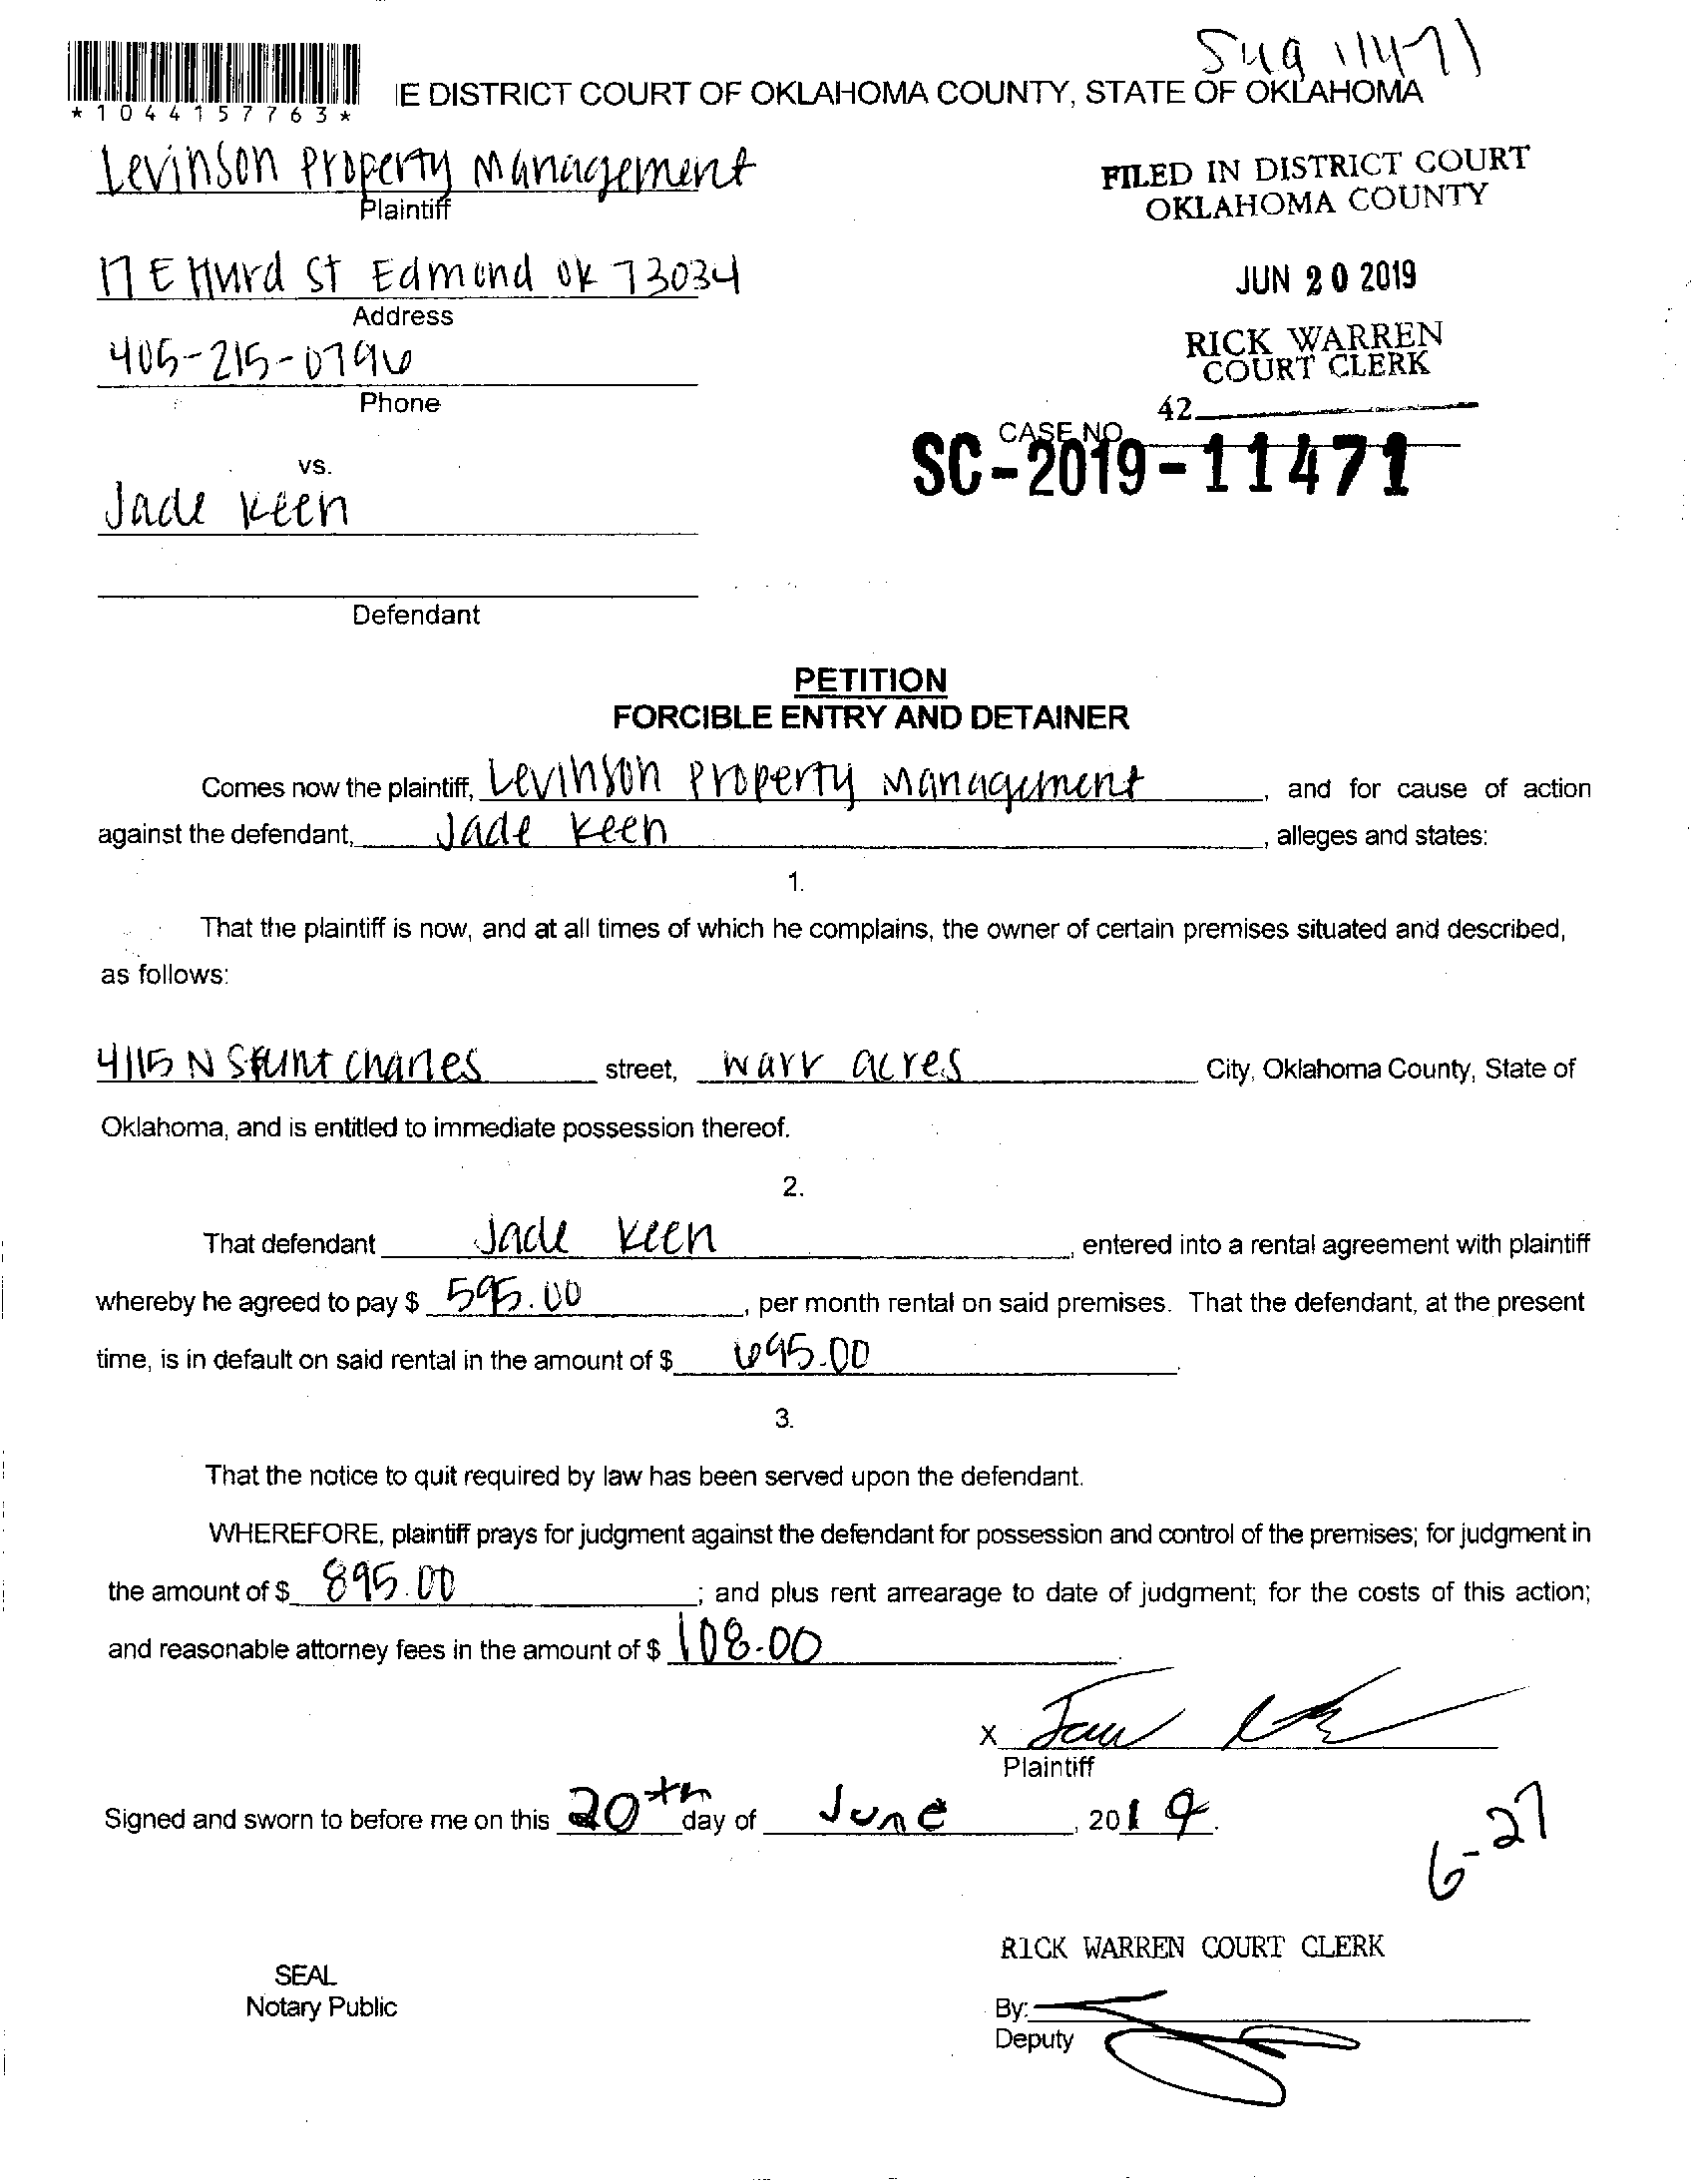 *1044157763*
Sug 11471
IE DISTRICT COURT OF OKLAHOMA COUNTY, STATE OF OKLAHOMA
Levinson Property Management
Plaintiff
FILED IN DISTRICT COURT
OKLAHOMA COUNTY
17 E Hurd St Edmond OK 73034
Address
JUN 20 2019
405-215-0796
Phone
RICK WARREN
COURT CLERK
42
CASE NO
SC-2019-11471
vs.
Jade Keen
Defendant
PETITION
FORCIBLE ENTRY AND DETAINER
Comes now the plaintiff, Levinson Property Management, and for cause of action
against the defendant, Jade Keen, alleges and states:
1.
That the plaintiff is now, and at all times of which he complains, the owner of certain premises situated and described,
as follows:
4115 N Saint Charles street, warr acres City, Oklahoma County, State of
Oklahoma, and is entitled to immediate possession thereof.
2.
That defendant Jade Keen, entered into a rental agreement with plaintiff
whereby he agreed to pay $ 595.00, per month rental on said premises. That the defendant, at the present
time, is in default on said rental in the amount of $ 695.00.
3.
That the notice to quit required by law has been served upon the defendant.
WHEREFORE, plaintiff prays for judgment against the defendant for possession and control of the premises; for judgment in
the amount of $ 895.00; and plus rent arrearage to date of judgment; for the costs of this action;
and reasonable attorney fees in the amount of $ 108.00.
X
Plaintiff
Signed and sworn to before me on this 20th day of June, 2019.
6-27
RICK WARREN COURT CLERK
SEAL
Notary Public
By:
Deputy